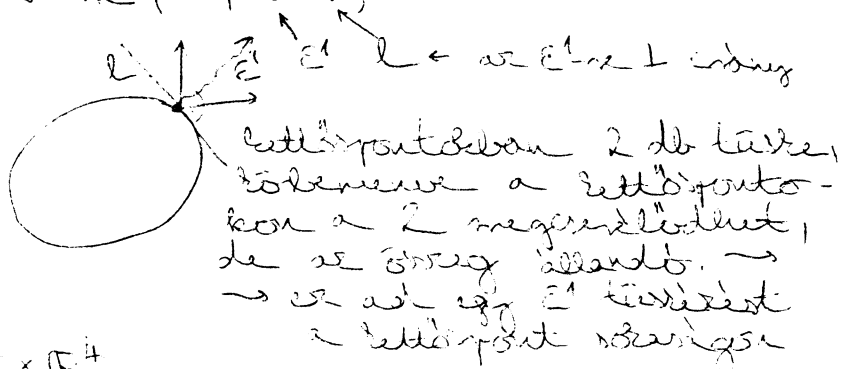 l ε¹ ε¹ l ← az ε¹-re ⊥ irány
kettőspontokban 2 db tüske,
körbemenve a kettősponto-
kon a 2 megcserélődhet,
de az összeg állandó. →
→ ez ad egy ε¹ tüskézést
a kettőspont sokaságon
× ℝ⁴